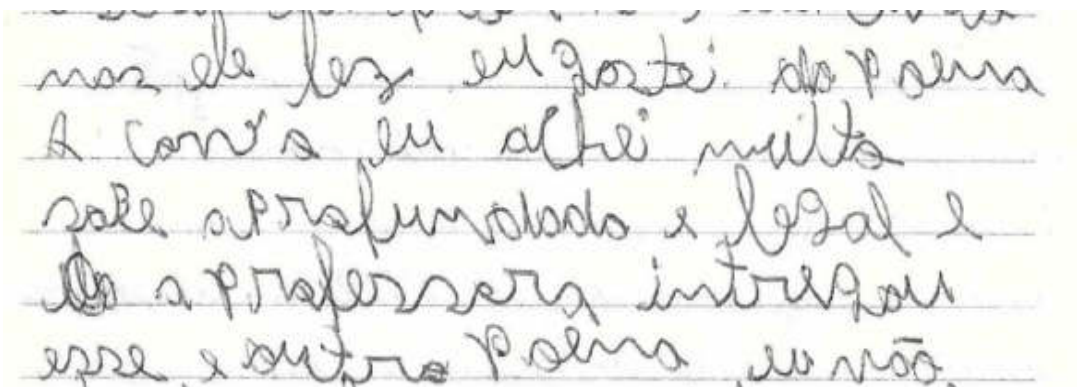 mas ele fez eu gostei do Poema
A eu achei muito
sobe aprofundado e legal e
a professora intregou
esse e outro Poema eu não